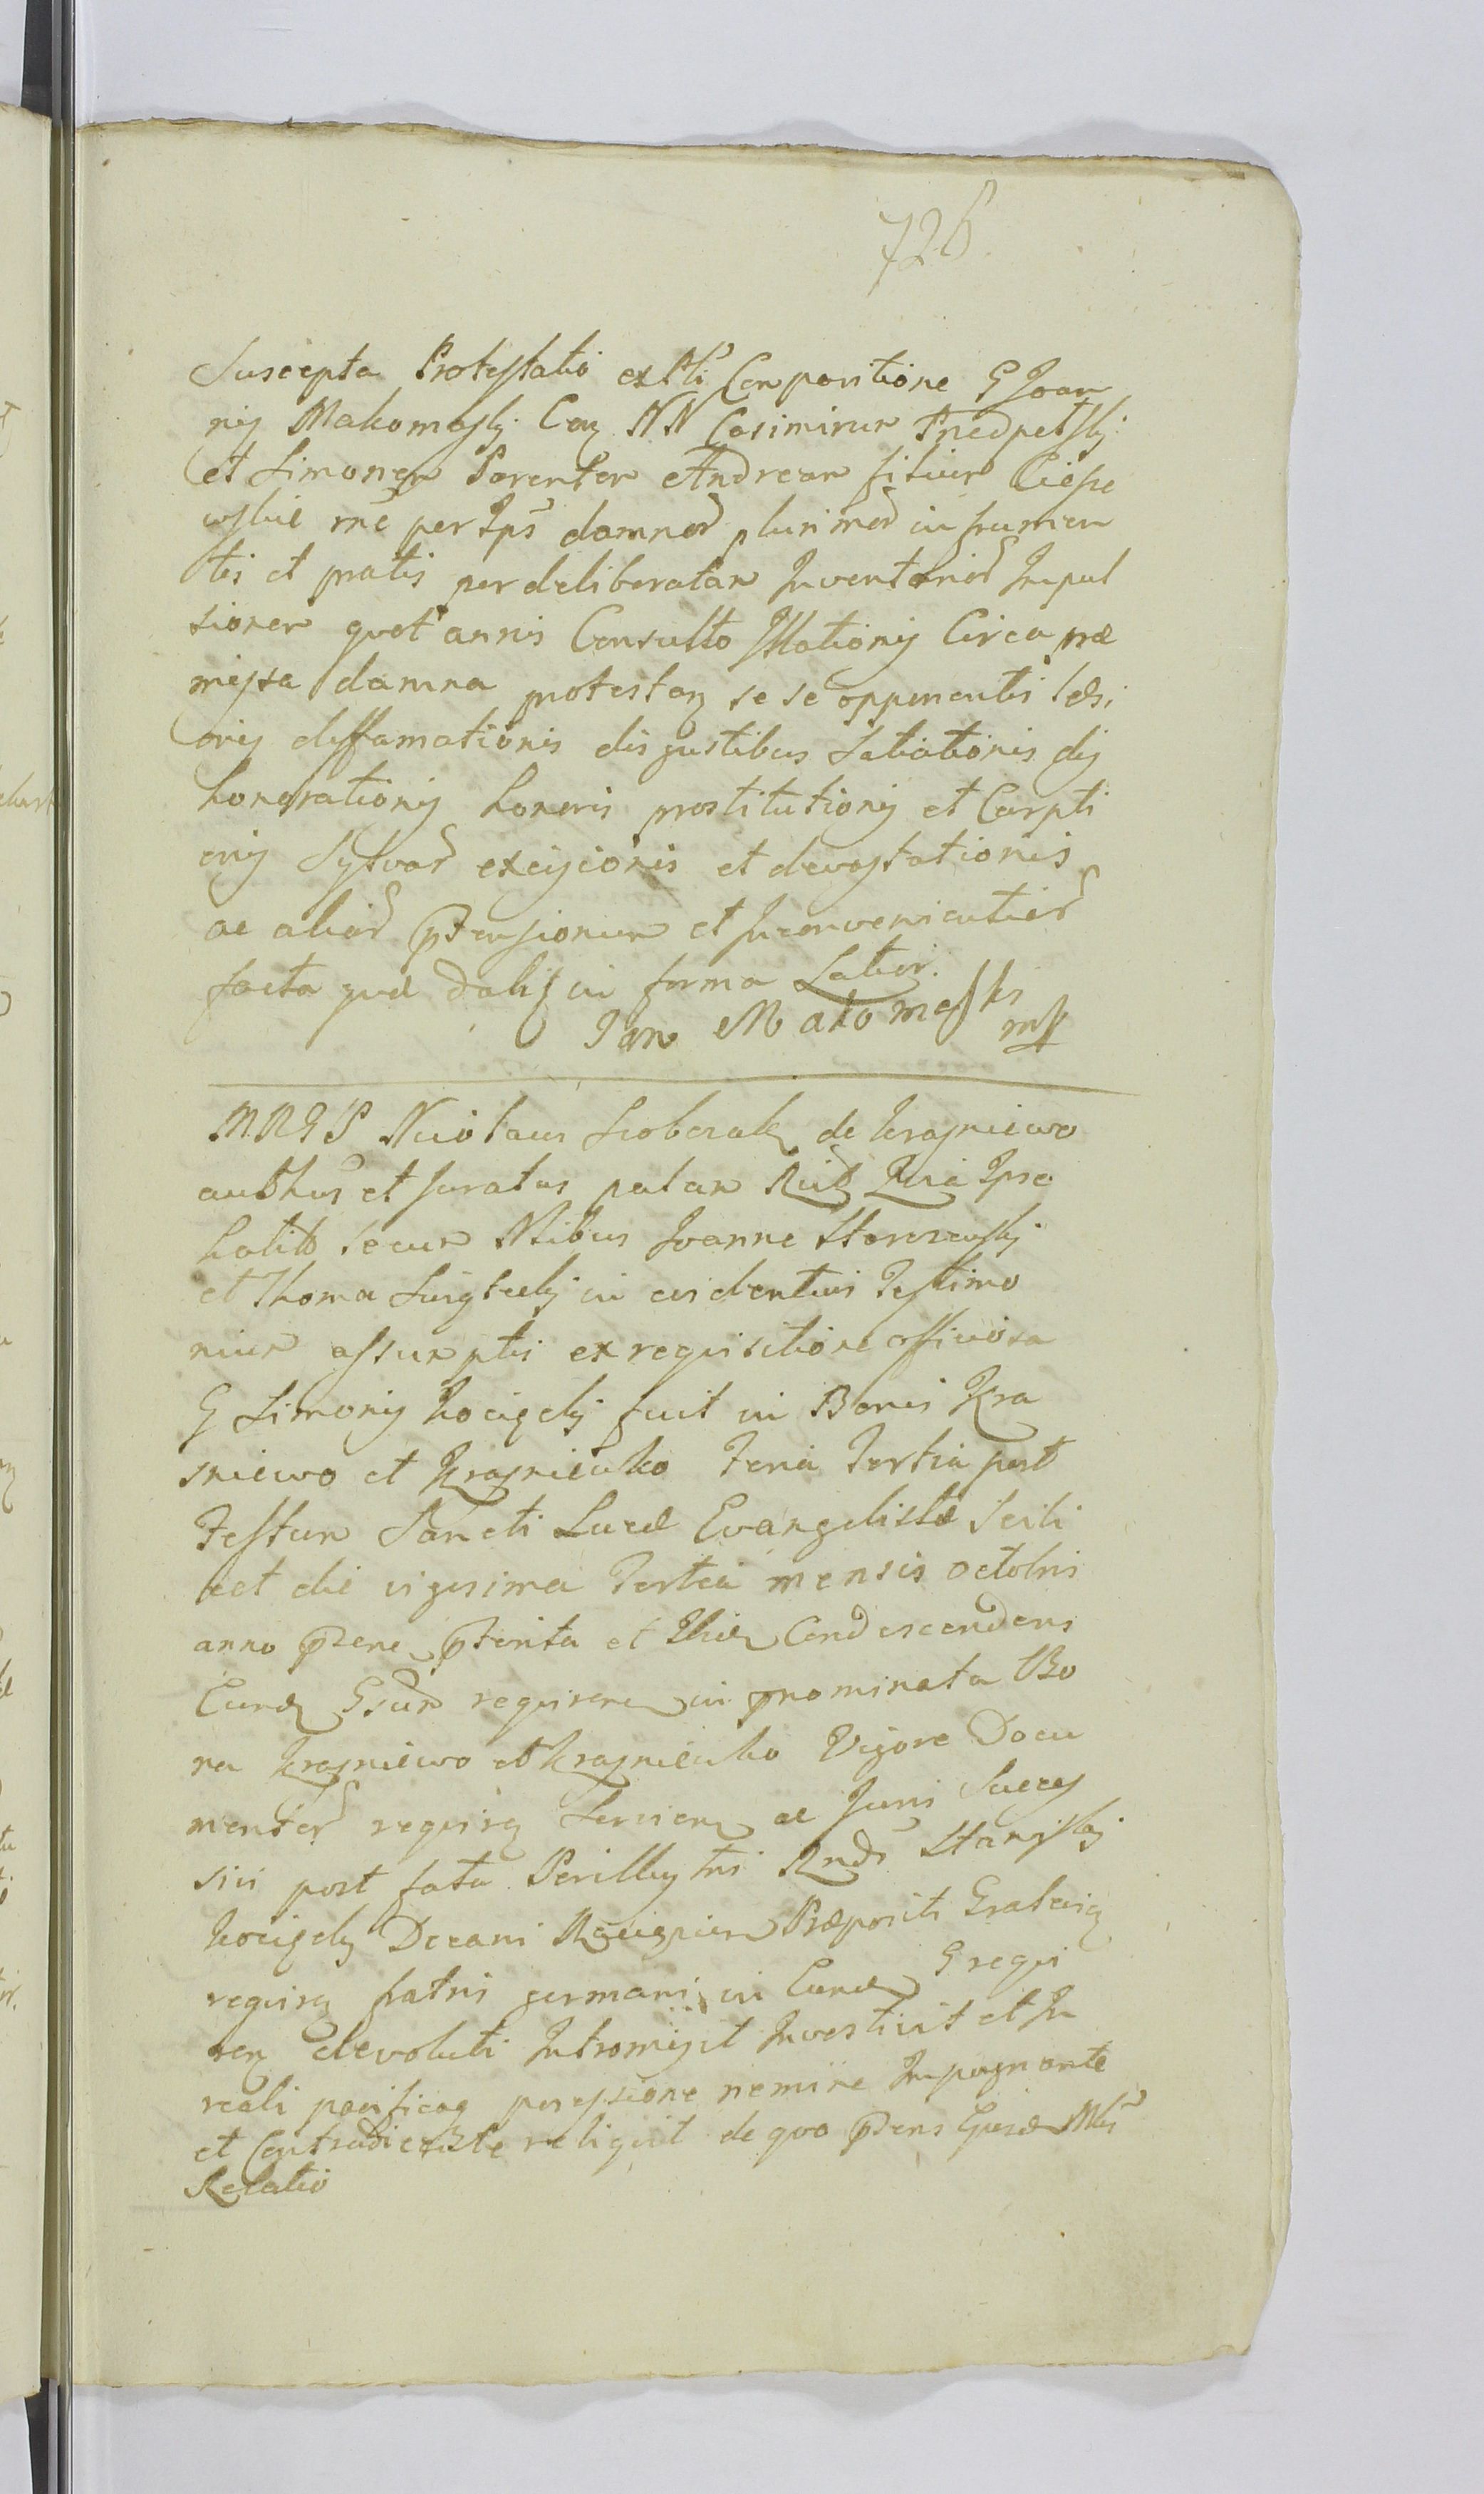 726.
Suscepta Protestatio ex Pti Comparitione G Joan
nis Makomaski Con NN Casimirum Przedpelski
et Simonem Parentem Andream filium Ciesze
wskie rne per Ips damnor plurimor in frumen
tis et pratis per deliberatam Jumentorum Impul
sionem quot annis Consulto Illationis Circa præ
missa damna protestan se se opponentis læsi
onis deffamationis disgustibus Satiationis dis
honorationis honoris prostitutionis et Carpti
onis Sylvar excisionis et devastationis
ac aliar ptensionum et Inconvenientiar
facta quæ Dalis in forma Latior.
Jan Makomaski mp
MRGP Nicolaus Skoberak de Krasniewo
authus et Juratus palam Rec Quia Ipse
habit secum Nlibus Joanne
et Thoma in evidentius Testimo
nium assumptis ex requisitione officiosa
G Simonis Kocięcki fuit in Bonis Kra
sniewo et Krasniewko Feria Tertia post
Festum Sancti Lucæ Evangelistæ Scili
cet die vigesima Tertia mensis Octobris
anno præterito et Ibidem Condescendens
Eund Gsum requiren in pnominata Bo
na Krasniewo et Krasniewko Vigore Docu
mentor requiren Servien ac Juris Succes
sivi post fata Perillustris Rndi Stanislai
Kocięcki Decani Raciązien Præpositi Gralewien
requiren fratris germani in Eund G requi
ren devoluti Intromisit Investivit et In
reali pacificaq possessione nemine Impugnante
et Contradicente reliquit de quo pns Ejusd Mlis
Relatio